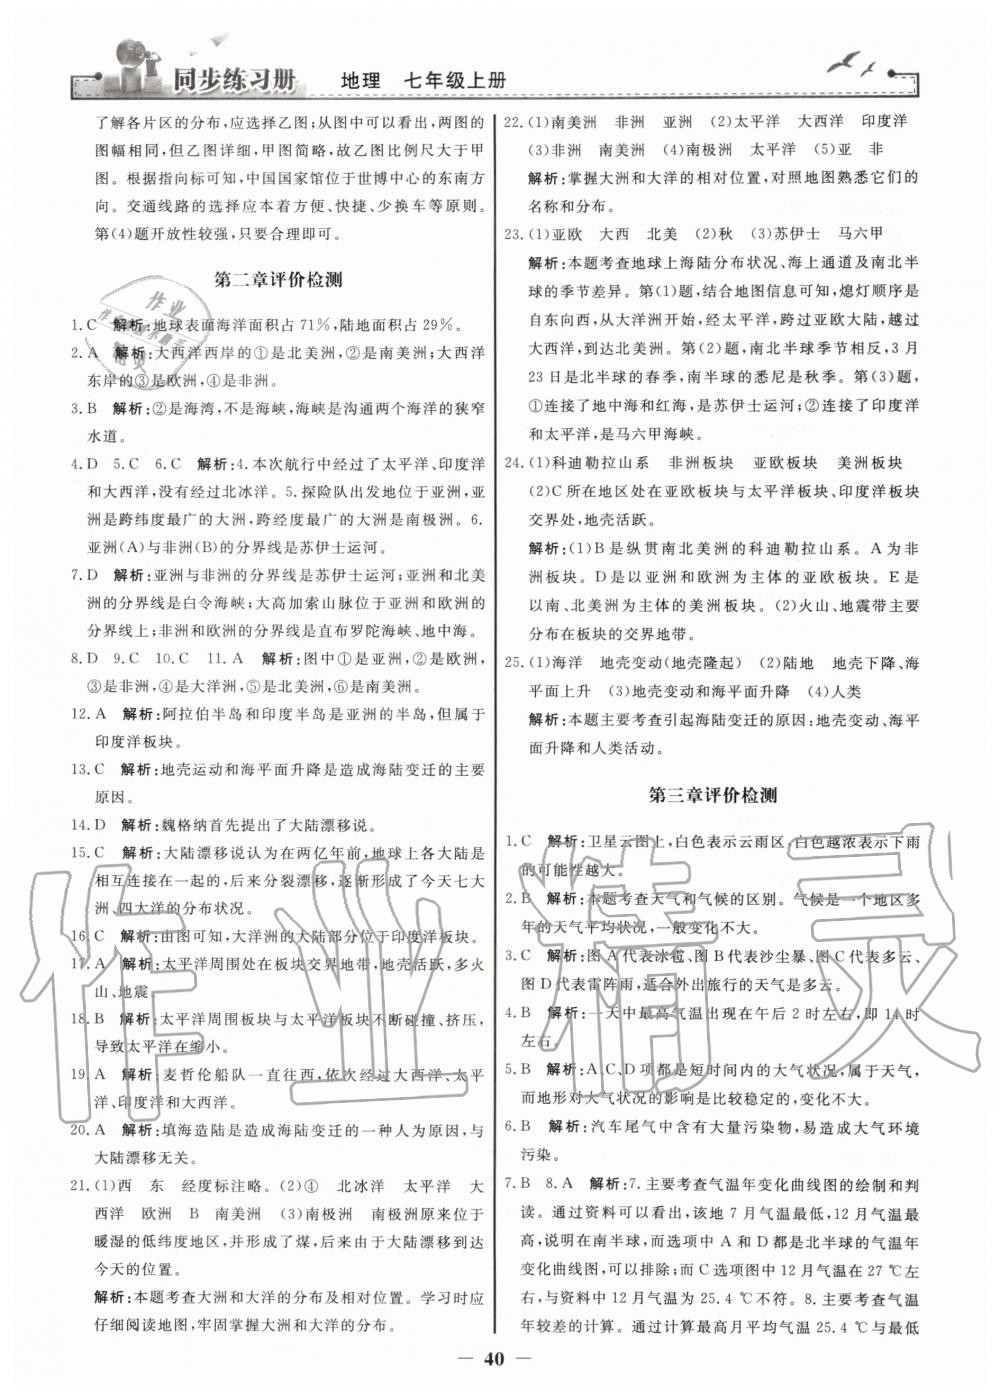 同步练习册 地理 七年级上册
了解各片区的分布,应选择乙图;从图中可以看出,两图的
图幅相同,但乙图详细,甲图简略,故乙图比例尺大于甲
图。根据指向标可知,中国国家馆位于世博中心的东南方
向。交通线路的选择应本着方便、快捷、少换车等原则。
第(4)题开放性较强,只要合理即可。
第二章评价检测
1. C 解析:地球表面海洋面积占 71%,陆地面积占 29%。
2. A 解析:大西洋西岸的①是北美洲,②是南美洲;大西洋
东岸的③是欧洲,④是非洲。
3. B 解析:②是海湾,不是海峡,海峡是沟通两个海洋的狭窄
水道。
4. D 5. C 6. C 解析:4. 本次航行中经过了太平洋、印度洋
和大西洋,没有经过北冰洋。5. 探险队出发地位于亚洲,亚
洲是跨纬度最广的大洲,跨经度最广的大洲是南极洲。6.
亚洲(A)与非洲(B)的分界线是苏伊士运河。
7. D 解析:亚洲与非洲的分界线是苏伊士运河;亚洲和北美
洲的分界线是白令海峡;大高加索山脉位于亚洲和欧洲的
分界线上;非洲和欧洲的分界线是直布罗陀海峡、地中海。
8. D 9. C 10. C 11. A 解析:图中①是亚洲,②是欧洲,
③是非洲,④是大洋洲,⑤是北美洲,⑥是南美洲。
12. A 解析:阿拉伯半岛和印度半岛是亚洲的半岛,但属于
印度洋板块。
13. C 解析:地壳运动和海平面升降是造成海陆变迁的主要
原因。
14. D 解析:魏格纳首先提出了大陆漂移说。
15. C 解析:大陆漂移说认为在两亿年前,地球上各大陆是
相互连接在一起的,后来分裂漂移,逐渐形成了今天七大
洲、四大洋的分布状况。
16. C 解析:由图可知,大洋洲的大陆部分位于印度洋板块。
17. A 解析:太平洋周围处在板块交界地带,地壳活跃,多火
山、地震。
18. B 解析:太平洋周围板块与太平洋板块不断碰撞、挤压,
导致太平洋在缩小。
19. A 解析:麦哲伦船队一直往西,依次经过大西洋、太平
洋、印度洋和大西洋。
20. A 解析:填海造陆是造成海陆变迁的一种人为原因,与
大陆漂移无关。
21. (1)西 东 经度标注略。(2)④ 北冰洋 太平洋 大
西洋 欧洲 B 南美洲 (3)南极洲 南极洲原来位于
暖湿的低纬度地区,并形成了煤,后来由于大陆漂移到达
今天的位置。
解析:本题考查大洲和大洋的分布及相对位置。学习时应
仔细阅读地图,牢固掌握大洲和大洋的分布。
22. (1)南美洲 非洲 亚洲 (2)太平洋 大西洋 印度洋
(3)非洲 南美洲 (4)南极洲 太平洋 (5)亚 非
解析:掌握大洲和大洋的相对位置,对照地图熟悉它们的
名称和分布。
23. (1)亚欧 大西 北美 (2)秋 (3)苏伊士 马六甲
解析:本题考查地球上海陆分布状况、海上通道及南北半
球的季节差异。第(1)题,结合地图信息可知,熄灯顺序是
自东向西,从大洋洲开始,经太平洋,跨过亚欧大陆,越过
大西洋,到达北美洲。第(2)题,南北半球季节相反,3 月
23 日是北半球的春季,南半球的悉尼是秋季。第(3)题,
①连接了地中海和红海,是苏伊士运河;②连接了印度洋
和太平洋,是马六甲海峡。
24. (1)科迪勒拉山系 非洲板块 亚欧板块 美洲板块
(2)C 所在地区处在亚欧板块与太平洋板块、印度洋板块
交界处,地壳活跃。
解析:(1)B 是纵贯南北美洲的科迪勒拉山系。A 为非
洲板块。D 是以亚洲和欧洲为主体的亚欧板块。E 是
以南、北美洲为主体的美洲板块。(2)火山、地震带主要
分布在板块的交界地带。
25. (1)海洋 地壳变动(地壳隆起) (2)陆地 地壳下降、海
平面上升 (3)地壳变动和海平面升降 (4)人类
解析:本题主要考查引起海陆变迁的原因:地壳变动、海平
面升降和人类活动。
第三章评价检测
1. C 解析:卫星云图上,白色表示云雨区,白色越浓表示下雨
的可能性越大。
2. B 解析:本题考查天气和气候的区别。气候是一个地区多
年的天气平均状况,一般变化不大。
3. C 解析:图 A 代表冰雹、图 B 代表沙尘暴、图 C 代表多云、
图 D 代表雷阵雨,适合外出旅行的天气是多云。
4. B 解析:一天中最高气温出现在午后 2 时左右,即 14 时
左右。
5. B 解析:A、C、D 项都是短时间内的大气状况,属于天气,
而地形对大气状况的影响是比较稳定的,变化不大。
6. B 解析:汽车尾气中含有大量污染物,易造成大气环境
污染。
7. B 8. A 解析:7. 主要考查气温年变化曲线图的绘制和判
读。通过资料可以看出,该地 7 月气温最低,12 月气温最
高,说明在南半球,而选项中 A 和 D 都是北半球的气温年
变化曲线图,可以排除;而 C 选项图中 12 月气温在 27 ℃左
右,与资料中 12 月气温为 25.4 ℃不符。8. 主要考查气温
年较差的计算。通过计算最高月平均气温 25.4 ℃与最低
— 40 —
作业精灵